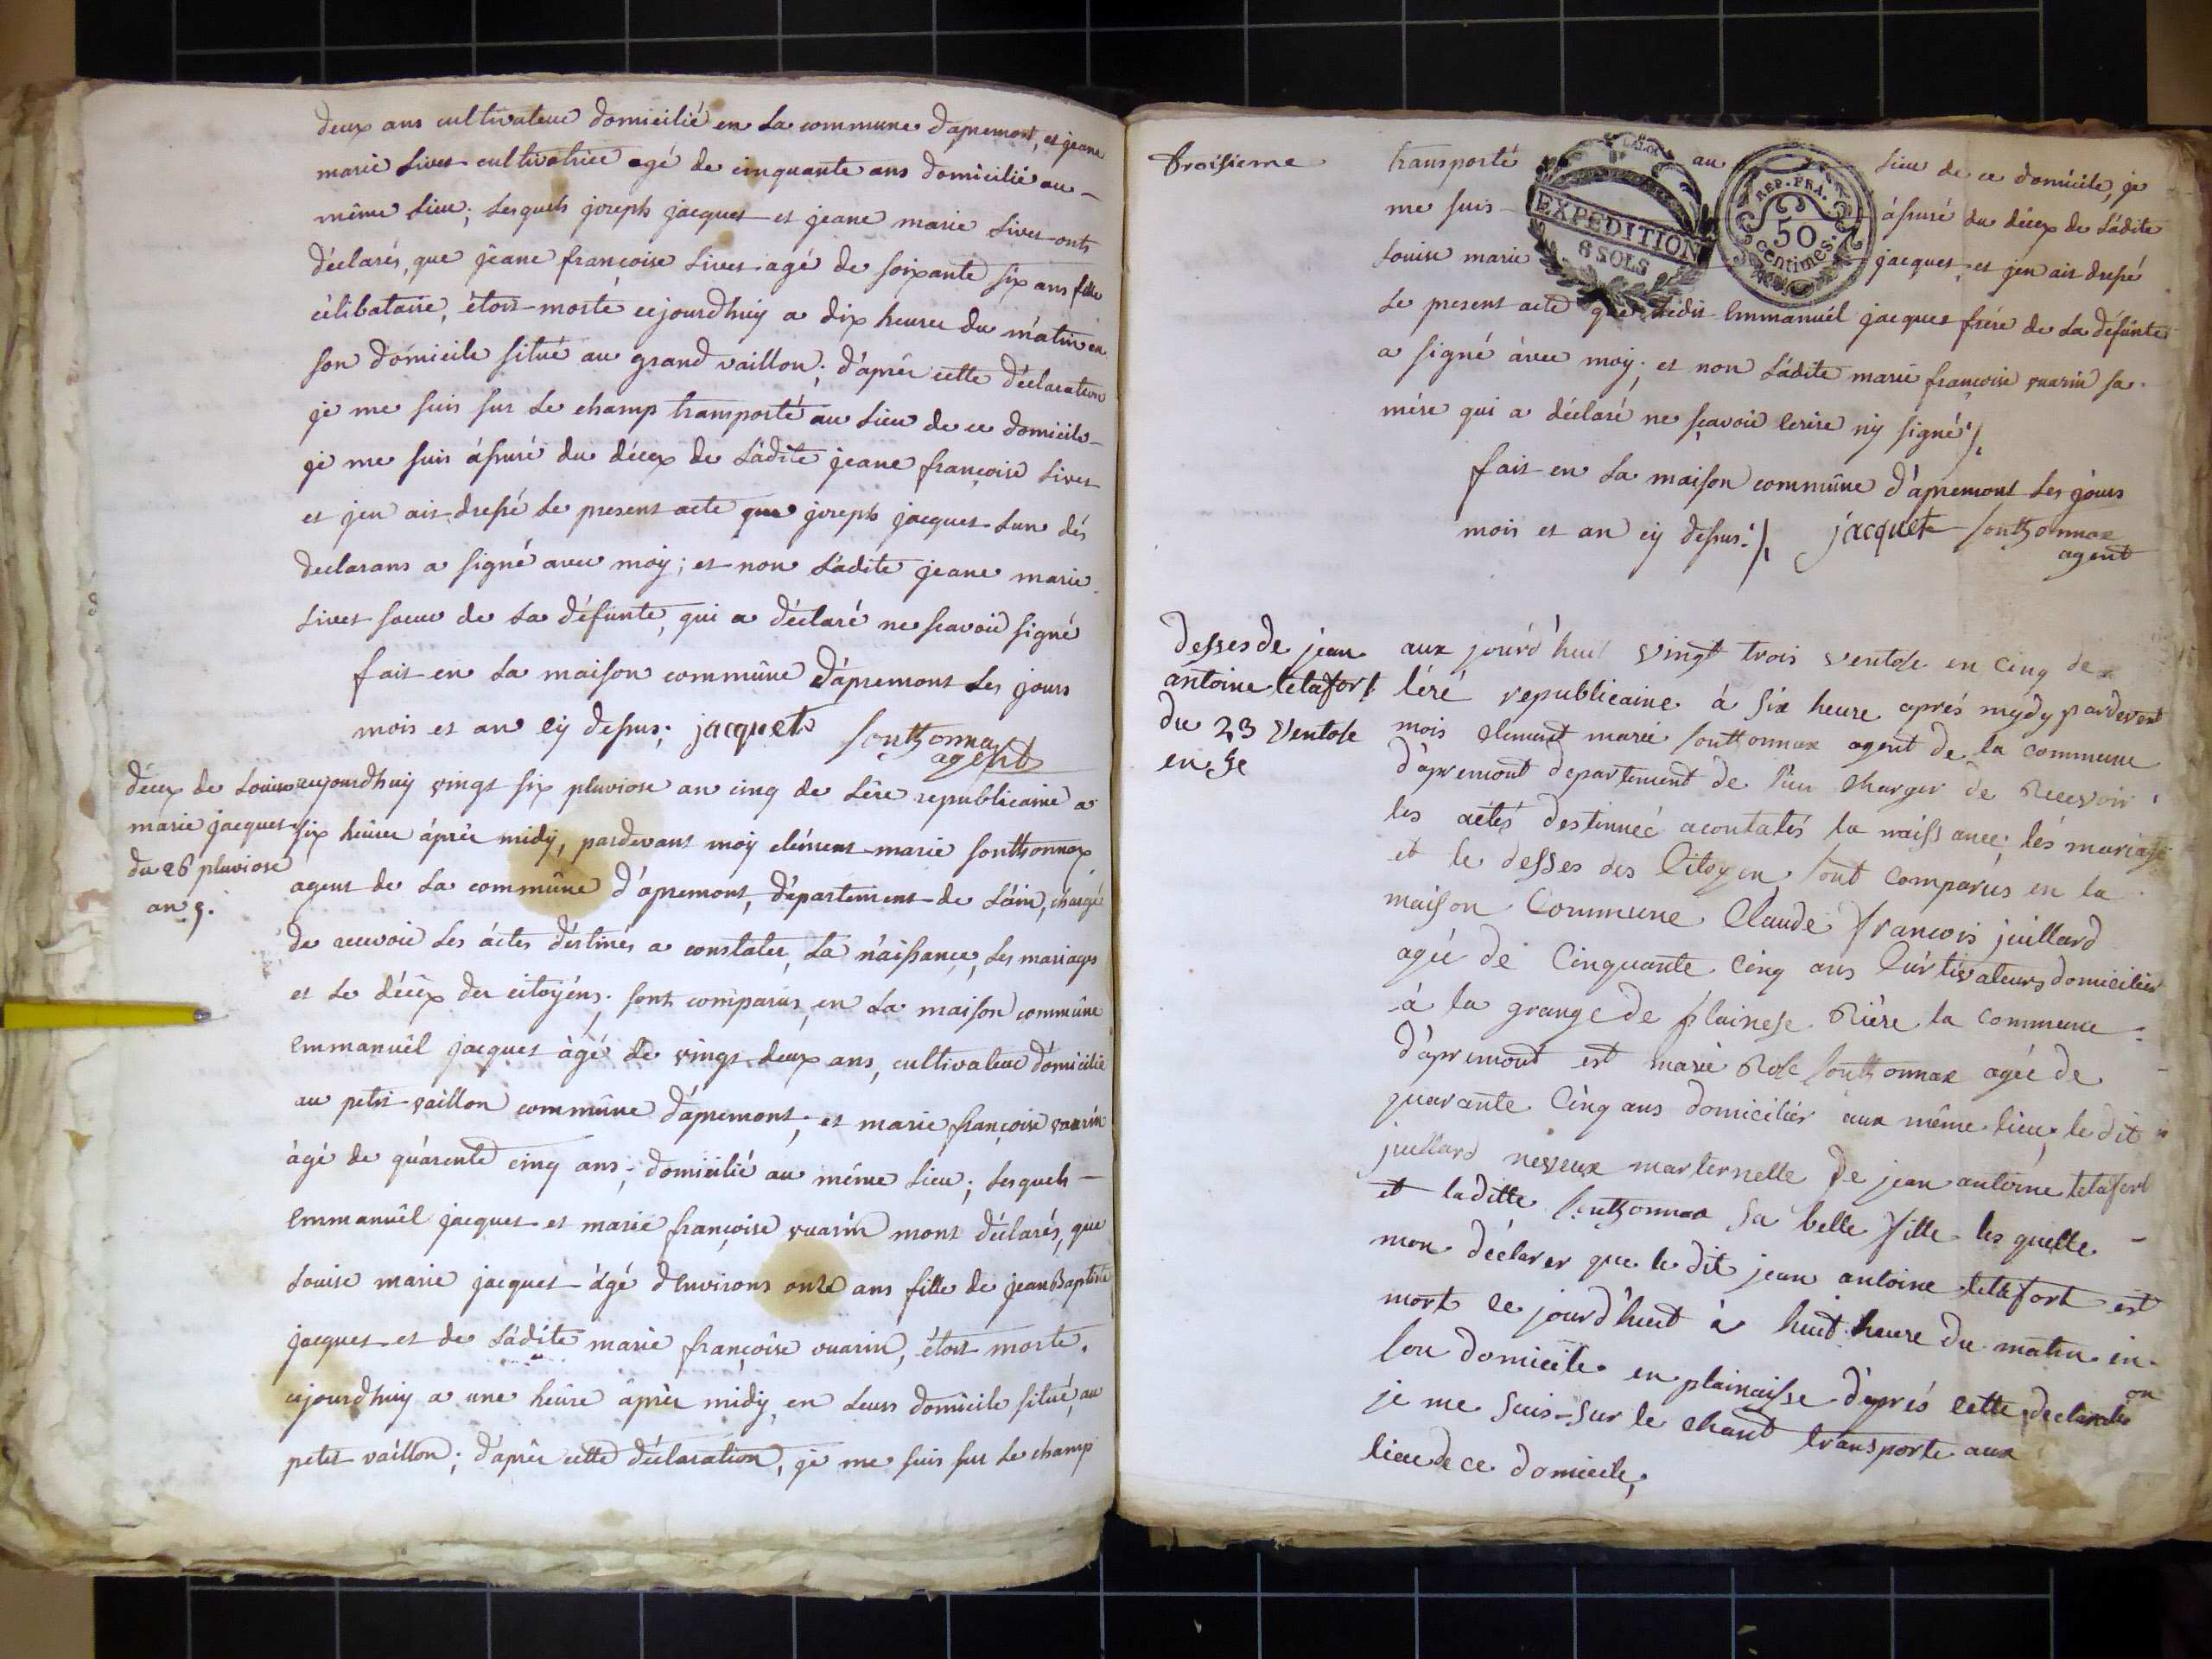 deux ans cultivateur domicilié en la commune dapremont, et jeane
marie livet cultivatrice agé de cinquante ans domicilié au
même lieu; lesquels joseph jacquet et jeane marie livet onts
déclarés, que jeane francoise livet agé de soixante six ans fille
célibataire, étoit morte cejourdhuy a dix heures du matin en
son domicile situé au grand vaillon; d'après cette déclaration
je me suis sur le champ transporté au lieu de ce domicile
je me suis ássuré du décex de ládite jeane françoise livet
et jen ait dressé le present acte que joseph jacquet lun dés
declarans a signé avec moÿ; et non ládite jeane marie
livet soeur de la défunte, qui a déclaré ne scavoir signé
fait en la maison commûne d'ápremont les jours
mois et an cÿ dessus; jacquet sonthonnax
agent
décex de louise
marie jacquet
du 26 pluviose
an 5.
cejourdhuy vingt six pluviose an cinq de lére republicaine a
six heûres áprês midÿ, pardevant moÿ clément marie sonthonnax
agent de la commûne d'ápremont, département de láin, chargé
de recevoir les áctes déstinés a constater, la náissance, les mariages
et le décex des citoyéns. sont comparus, en la maison commûne
Emmanuêl jacquet àgé de vingt deux ans, cultivateur domicilié
au petit vaillon commûne d'ápremont; et marie françoise vuarin
ágé de quárente cinq ans; domicilié au même lieu; lesquels
Emmanuêl jacquet et marie françoise vuarin mont déclarés, que
Louise marie jacquet ágé d'Environs onze ans fille de jean Baptiste
jacquet et de ládite marie françoise vuarin, étoit morte,
cejourdhuy a une heûre âprês midÿ, en leurs domicile situé, au
petit vaillon; d'aprês cette déclaration, je me suis sur le champ
troisieme
transporté au lieu de ce domicile, je
EXPEDITION
6 SOLS
REP. FRA.
50
Centimes.
me suis ássuré du décex de ládite
Louise marie jacquet; et jen ait dressé
le present acte que ledit Emmanuél jacquet frére de la défunte
a signé ávec moÿ; et non ládite marie françoise vuarin sa
mére qui a déclaré ne sçavoir Ecrire nÿ signé
fait en la maison commûne d'ápremont les jours
mois et an cÿ dessus. jacquet sonthonnax
agent
desses de jean
antoine letafort
du 23 Ventose
en 5e
aux jourd'huit vingt trois ventose en cinq de
léré republicaine á six heure aprés mydy pardevent
mois clement marie sonthonnax agent de la commune
d'apremont departement de l'ain charger de recevoir
les actés destinneé acontatés la naissance; lés mariage
et le desses des Citoyen sont comparus en la
maison Commune Claude francois juillard
agée de Cinquante Cinq ans Curtivateurs domicilier
á la grange de plainesse Riére la commune
d'apremont est marie Rose sonthonnax agée de
quarante Cinq ans domicilier aux même lieu, le dit
juillard neveux marternelle de jean antoine letafort
et laditte sonthonnax sa belle fille les quelle
mon déclarer que le dit jean antoine letafort est
mort ce jourd'huit á huit heure du matin en
son domicile en plainaisse d'aprés cette declaration
je me suis sur le chant transporte aux
lieu de ce domicile,